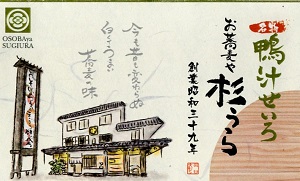 OSOBAya
SUGIURA
名物
鴨汁せいろ
お蕎麦や
杉うら
創業昭和三十九年
今も昔も変わらぬ
白くてうまい
蕎麦の味